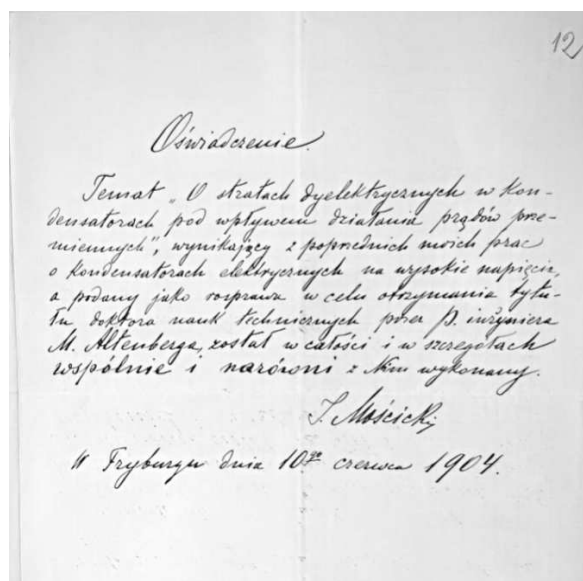 12
Oświadczenie.
Temat „O stratach dyelektrycznych w kon-
densatorach pod wpływem działania prądów prze-
miennych", wynikający z poprzednich moich prac
o kondensatorach elektrycznych na wysokie napięcie,
a podany jako rozprawa w celu otrzymania tytu-
łu doktora nauk technicznych przez P. inżyniera
M. Altenberga, został w całości i w szczegółach
wspólnie i narówni z Nim wykonany.
I. Mościcki
W Fryburgu dnia 10go czerwca 1904.